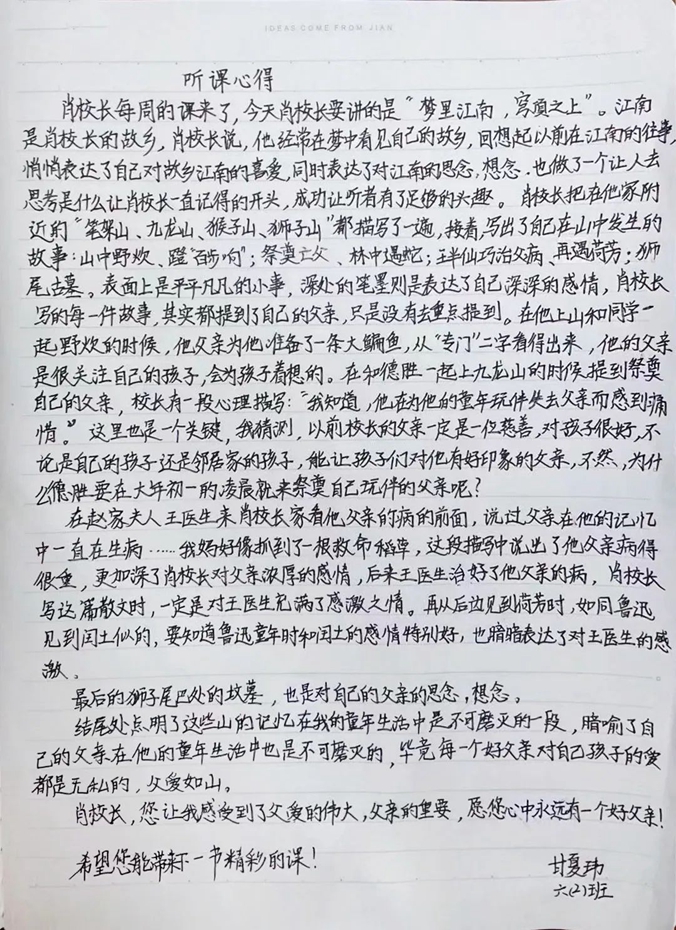 IDEAS COME FROM JIAN
听课心得
肖校长每周的课来了,今天肖校长要讲的是“梦里江南,穹顶之上”。江南
是肖校长的故乡,肖校长说,他经常在梦中看见自己的故乡,回想起以前在江南的往事,
悄悄表达了自己对故乡江南的喜爱,同时表达了对江南的思念,想念.也做了一个让人去
思考是什么让肖校长一直记得的开头,成功让听者有了足够的兴趣。肖校长把在他家附
近的“笔架山、九龙山、猴子山、狮子山”都描写了一遍,接着,写出了自己在山中发生的
故事:山中野炊、蹬“百步响”;祭奠亡父、林中遇蛇;王半仙巧治父病、再遇荷芳;狮
尾古墓。表面上是平平凡凡的小事,深处的笔墨则是表达了自己深深的感情,肖校长
写的每一件故事,其实都提到了自己的父亲,只是没有去重点提到。在他上山和同学一
起野炊的时候,他父亲为他准备了一条大鳊鱼,从“专门”二字看得出来,他的父亲
是很关注自己的孩子,会为孩子着想的。在和德胜一起上九龙山的时候,提到祭奠
自己的父亲,校长有一段心理描写:“我知道,他在为他的童年玩伴失去父亲而感到痛
惜。”这里也是一个关键,我猜测,以前校长的父亲一定是一位慈善,对孩子很好,不
论是自己的孩子还是邻居家的孩子,能让孩子们对他有好印象的父亲,不然,为什
么德胜要在大年初一的凌晨就来祭奠自己玩伴的父亲呢?
在赵家夫人王医生来肖校长家看他父亲的病的前面,说过父亲在他的记忆
中一直在生病……我妈好像抓到了一根救命稻草,这段描写中说出了他父亲病得
很重,更加深了肖校长对父亲浓厚的感情,后来王医生治好了他父亲的病,肖校长
写这篇散文时,一定是对王医生充满了感激之情。再从后边见到荷芳时,如同鲁迅
见到闰土似的,要知道鲁迅童年时和闰土的感情特别好,也暗暗表达了对王医生的感
激。
最后的狮子尾巴处的坟墓,也是对自己的父亲的思念,想念。
结尾处点明了这些山的记忆在我的童年生活中是不可磨灭的一段,暗喻了自
己的父亲在他的童年生活中也是不可磨灭的,毕竟每一个好父亲对自己孩子的爱
都是无私的,父爱如山。
肖校长,您让我感受到了父爱的伟大,父亲的重要,愿您心中永远有一个好父亲!
希望您能带来下一节精彩的课!
甘夏玮
六(2)班